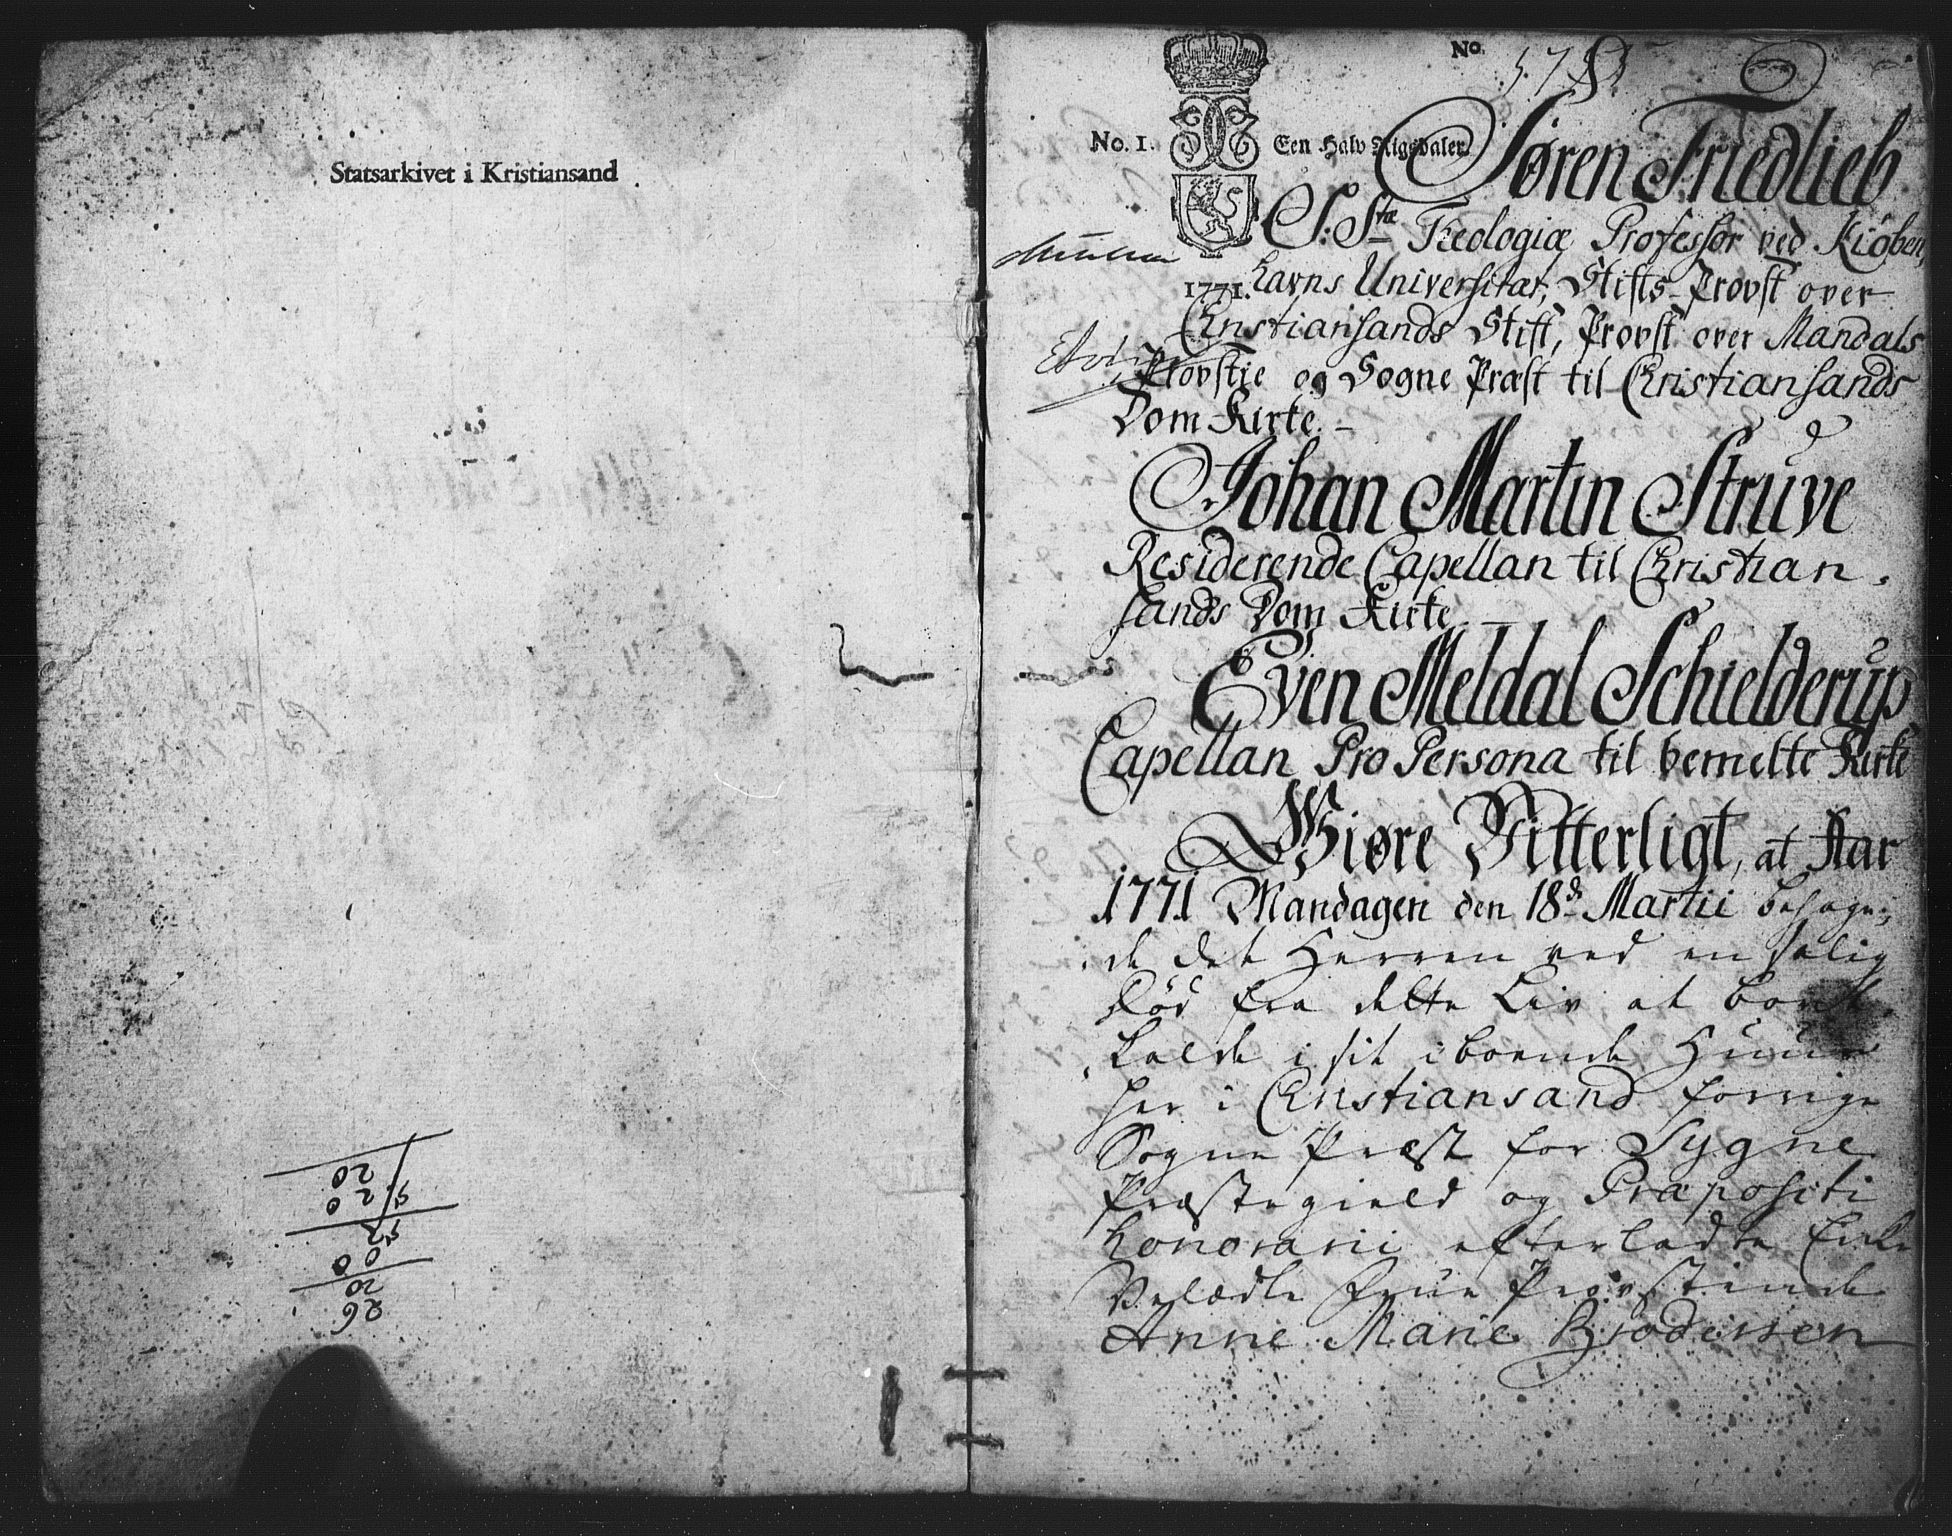 Statsarkivet i Kristiansand
20
20
52
00
20
26
No. 578
No. 1. Een Halv Rigsdaler
1771.
Søren Friedlieb
S: Stæ Theologiæ Professor ved Kiøben,
havns Universitæt, Stifts-Provst over
Christiansands Stift, Provst over Mandals
Provstie og Sogne Præst til Christiansands
Dom Kirke. –
Johan Martin Struve
Residerende Capellan til Christian,
sands Dom Kirke. –
Even Meldal Schielderup
Capellan Pro Persona til bemelte Kirke
Giøre Vitterligt, at Aar
1771 Mandagen den 18d Martii behage,
de det Herren ved en salig
Død fra dette Liv at bort,
kalde i sit iboende Huus
her i Christiansand forrige
Sogne Præst for Sygne
Præstegield og Præpositi
honorarii efterladte Enke
Velædle Frue Provstinde
Anne Marie Brodersen